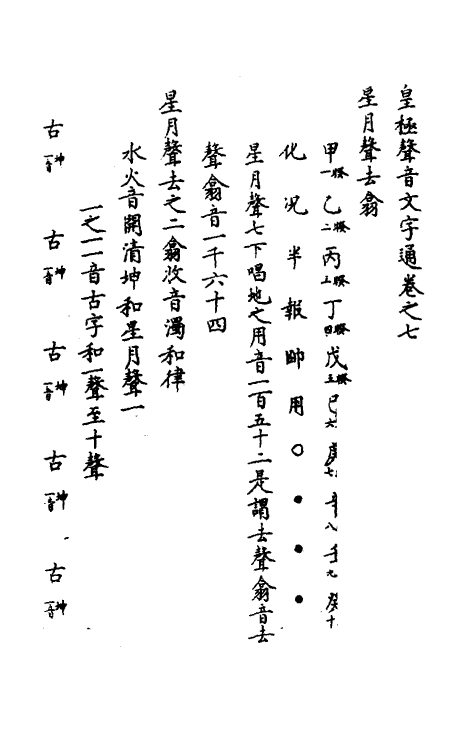 皇極聲音文字通卷之七
星月聲去翕
甲一揆乙二揆丙三揆丁四揆戊五揆己六庚七辛八壬九癸十
化况半報帥用○●●●
星月聲七下唱地之用音一百五十二是謂去聲翕音去
聲翕音一千六十四
星月聲去之二翕收音濁和律
水火音開清坤和星月聲一
一之一一音古字和一聲至十聲
古坤一音 古坤一音 古坤一音 古坤一音 古坤一音